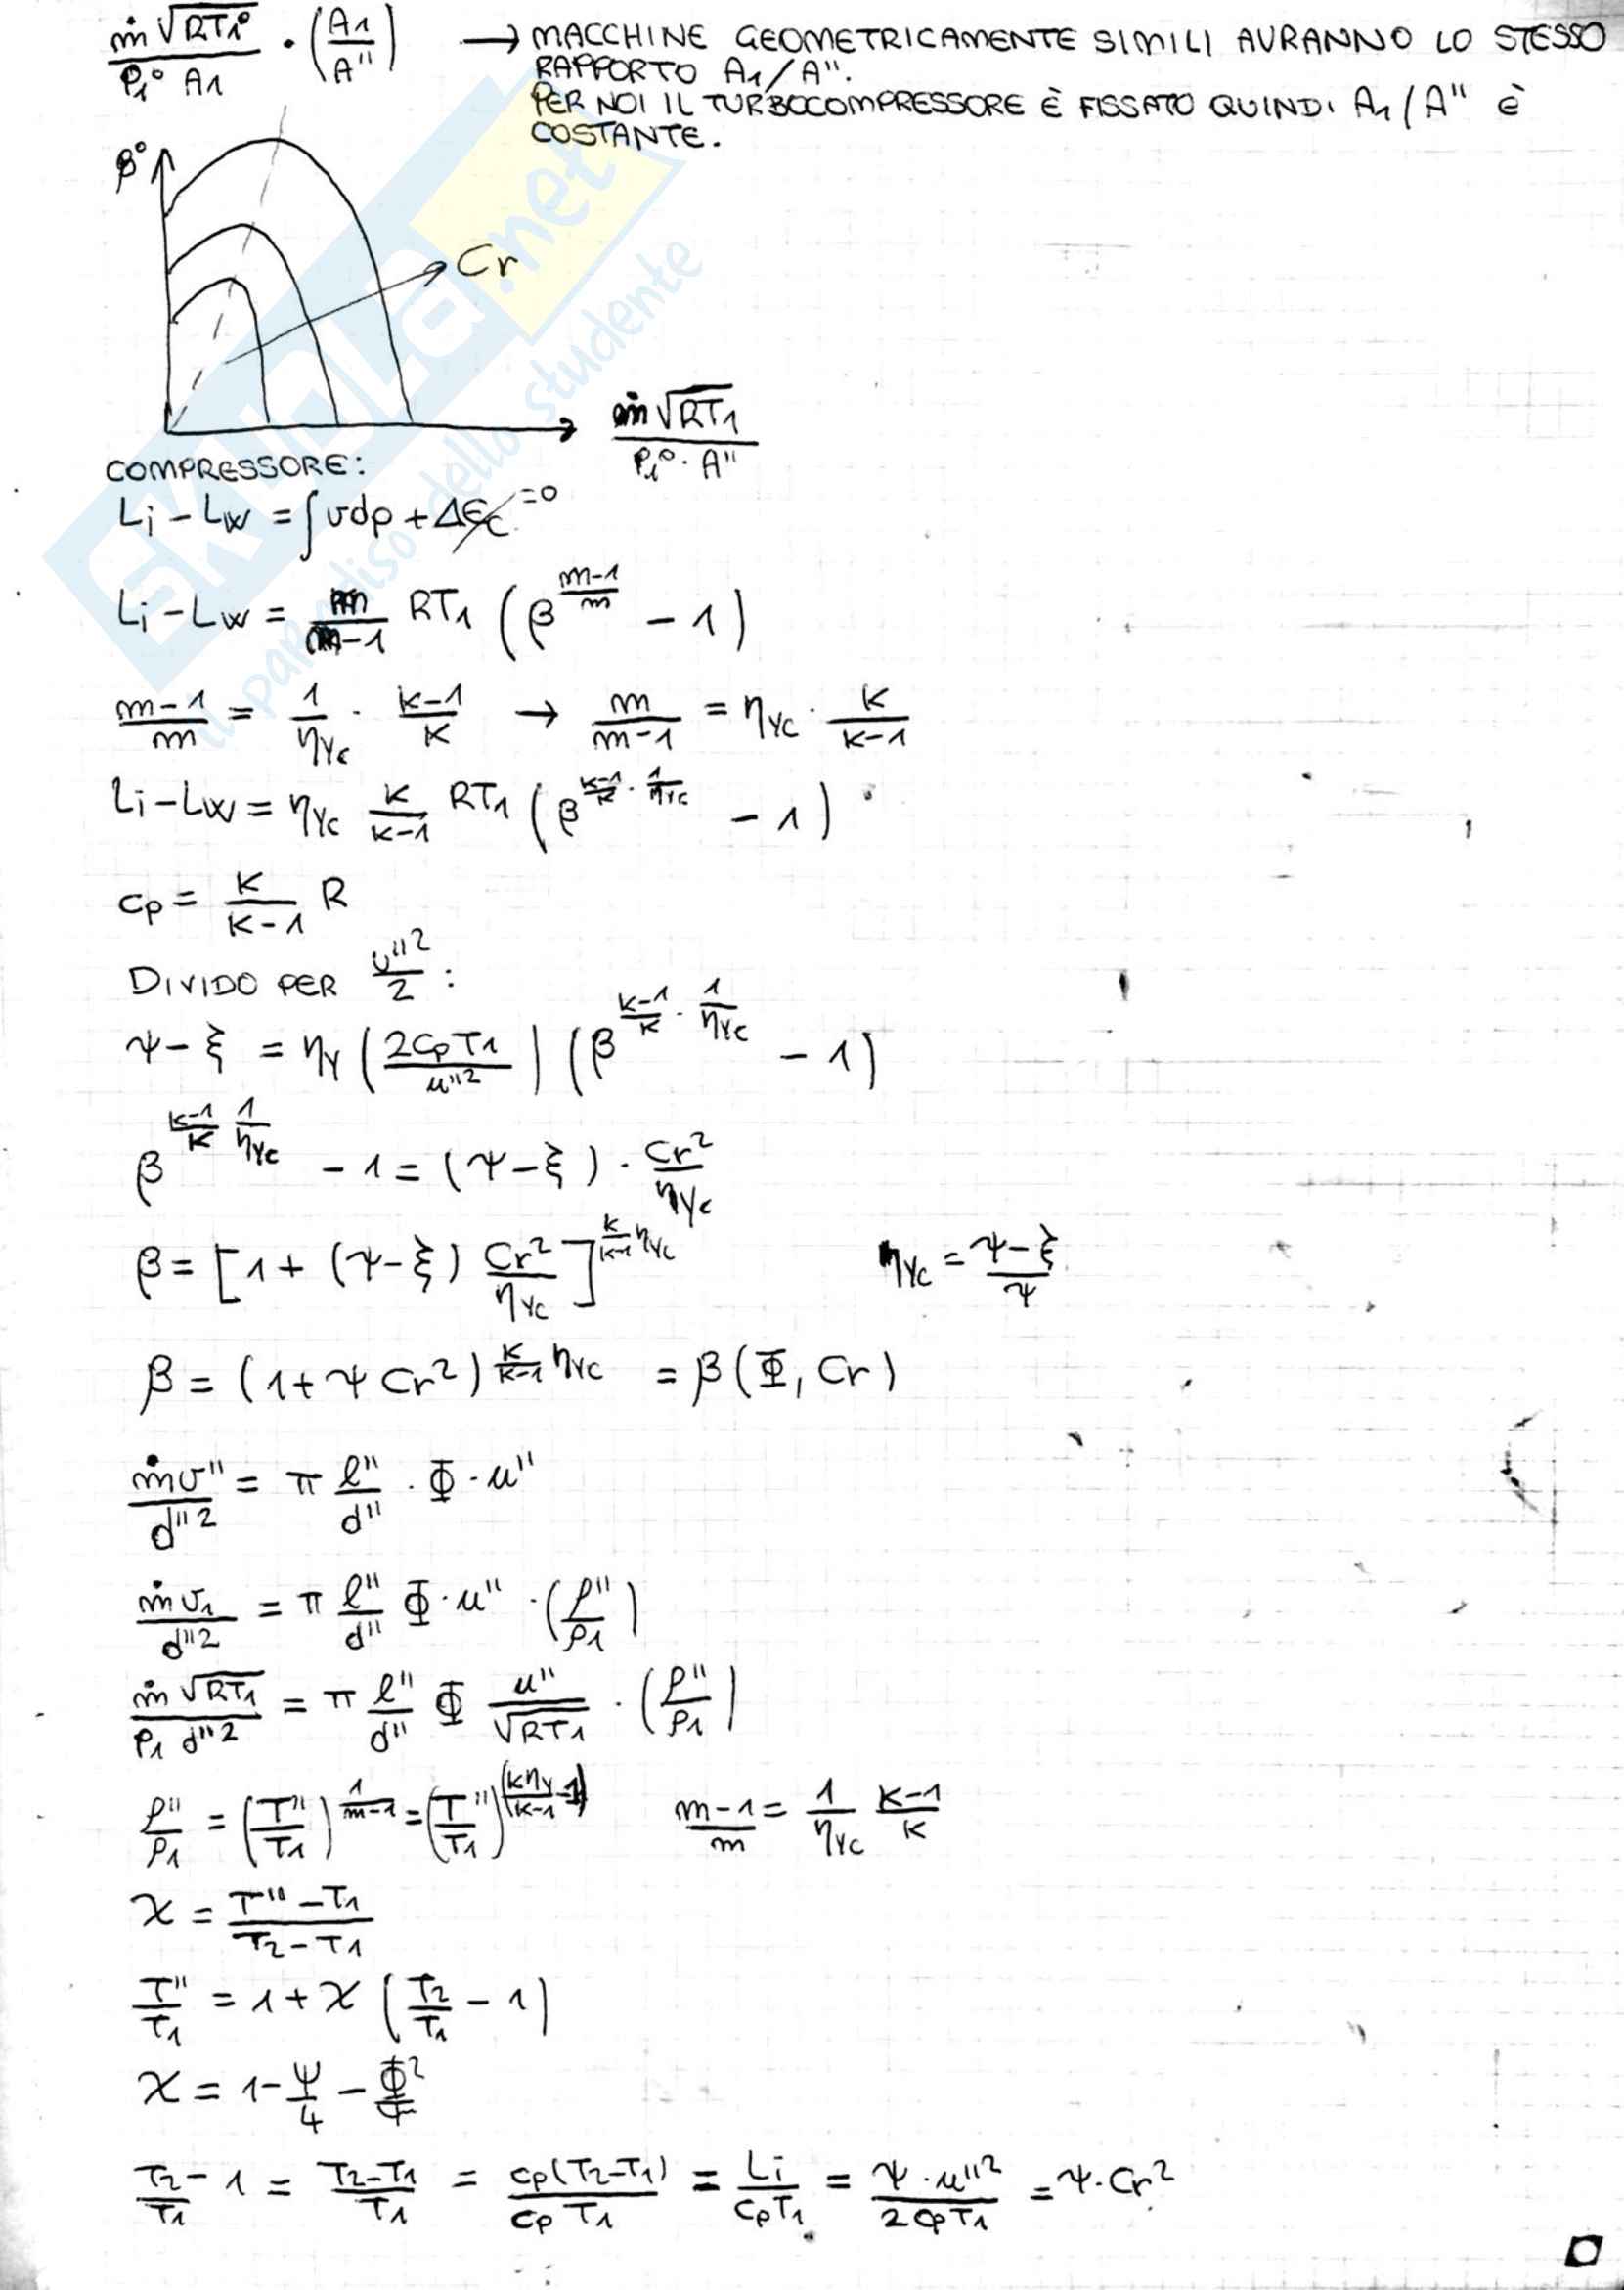 ṁ√RT₁° / P₁° A₁ · (A₁/A'') → MACCHINE GEOMETRICAMENTE SIMILI AVRANNO LO STESSO
RAPPORTO A₁/A''.
PER NOI IL TURBOCOMPRESSORE È FISSATO QUINDI A₁/A'' È
COSTANTE.
β°
Cr
ṁ√RT₁ / P₁°·A''
SKUOLA.net
il paradiso dello studente
COMPRESSORE:
Li - Lw = ∫vdp + ΔEc =0
Li - Lw = m/(m-1) RT₁ (β^((m-1)/m) - 1)
(m-1)/m = 1/ηyc · (k-1)/k → m/(m-1) = ηyc · k/(k-1)
Li - Lw = ηyc k/(k-1) RT₁ (β^((k-1)/k · 1/ηyc) - 1)
cp = k/(k-1) R
DIVIDO PER u''²/2 :
ψ - ξ = ηy (2cpT₁/u''²) (β^((k-1)/k · 1/ηyc) - 1)
β^((k-1)/k 1/ηyc) - 1 = (ψ - ξ) · Cr²/ηyc
β = [1 + (ψ - ξ) Cr²/ηyc]^(k/(k-1) ηyc) ηyc = (ψ - ξ)/ψ
β = (1 + ψ Cr²)^(k/(k-1) ηyc) = β(Φ, Cr)
ṁv''/d''² = π l''/d'' · Φ · u''
ṁv₁/d''² = π l''/d'' Φ · u'' · (ρ''/ρ₁)
ṁ√RT₁ / P₁ d''² = π l''/d'' Φ u''/√RT₁ · (ρ''/ρ₁)
ρ''/ρ₁ = (T''/T₁)^(1/(m-1)) = (T''/T₁)^(kηy/(k-1) - 1) (m-1)/m = 1/ηyc (k-1)/k
χ = (T'' - T₁)/(T₂ - T₁)
T''/T₁ = 1 + χ (T₂/T₁ - 1)
χ = 1 - ψ/4 - Φ²/ψ
T₂/T₁ - 1 = (T₂-T₁)/T₁ = cp(T₂-T₁)/cp T₁ = Li/cpT₁ = ψ·u''²/2cpT₁ = ψ·Cr²